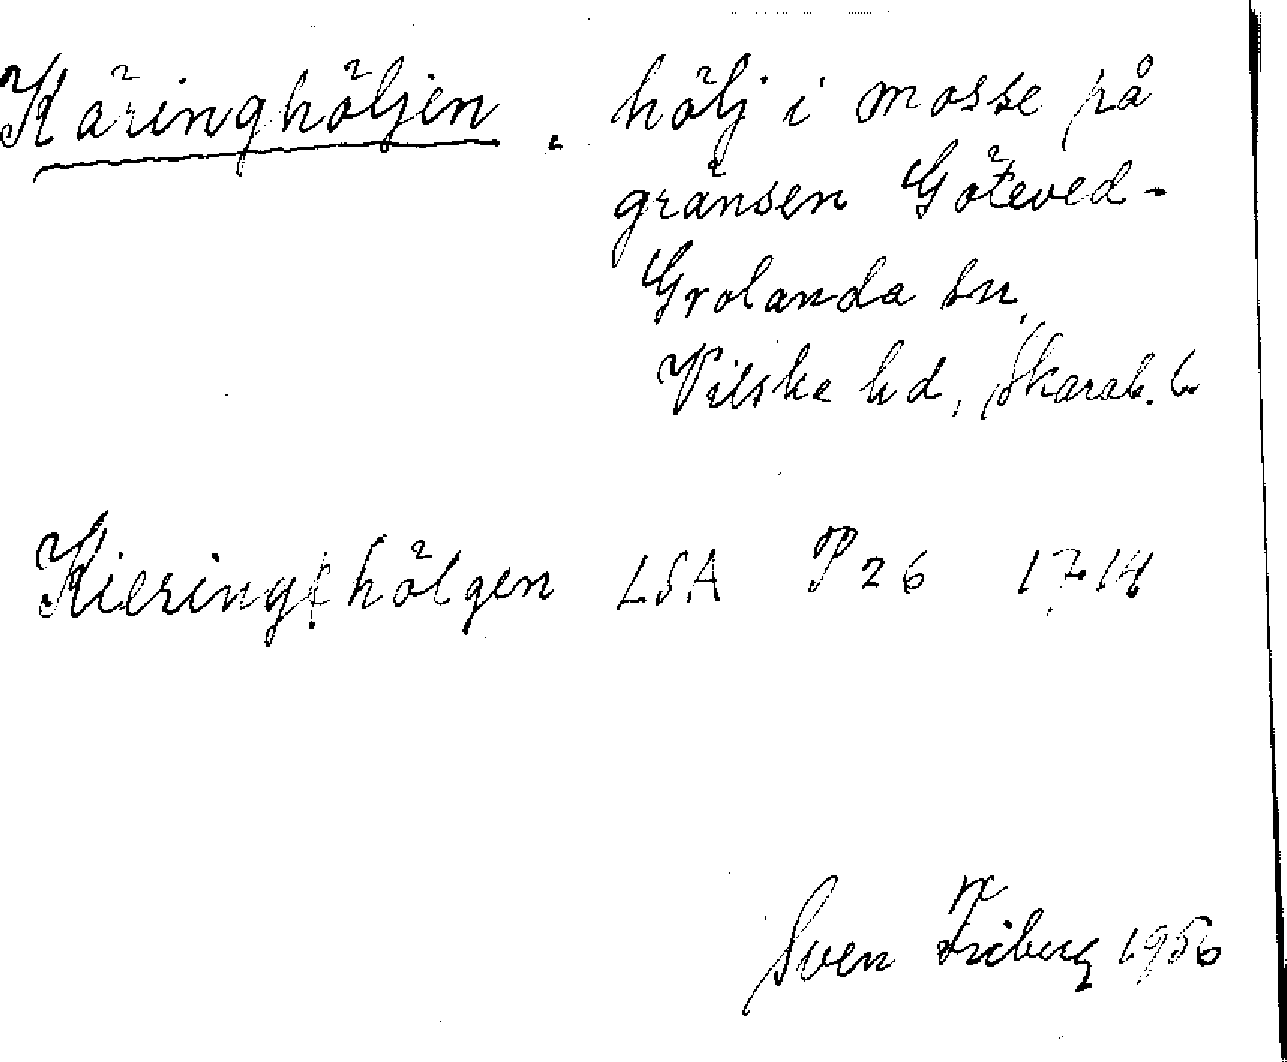 Käringhöljen. hölj i mosse på
gränsen Göteved-
Grolanda sn,
Vilske hd, Skarab. l.
Kieringhölgen LSA P26 1714
Sven Friberg 1956